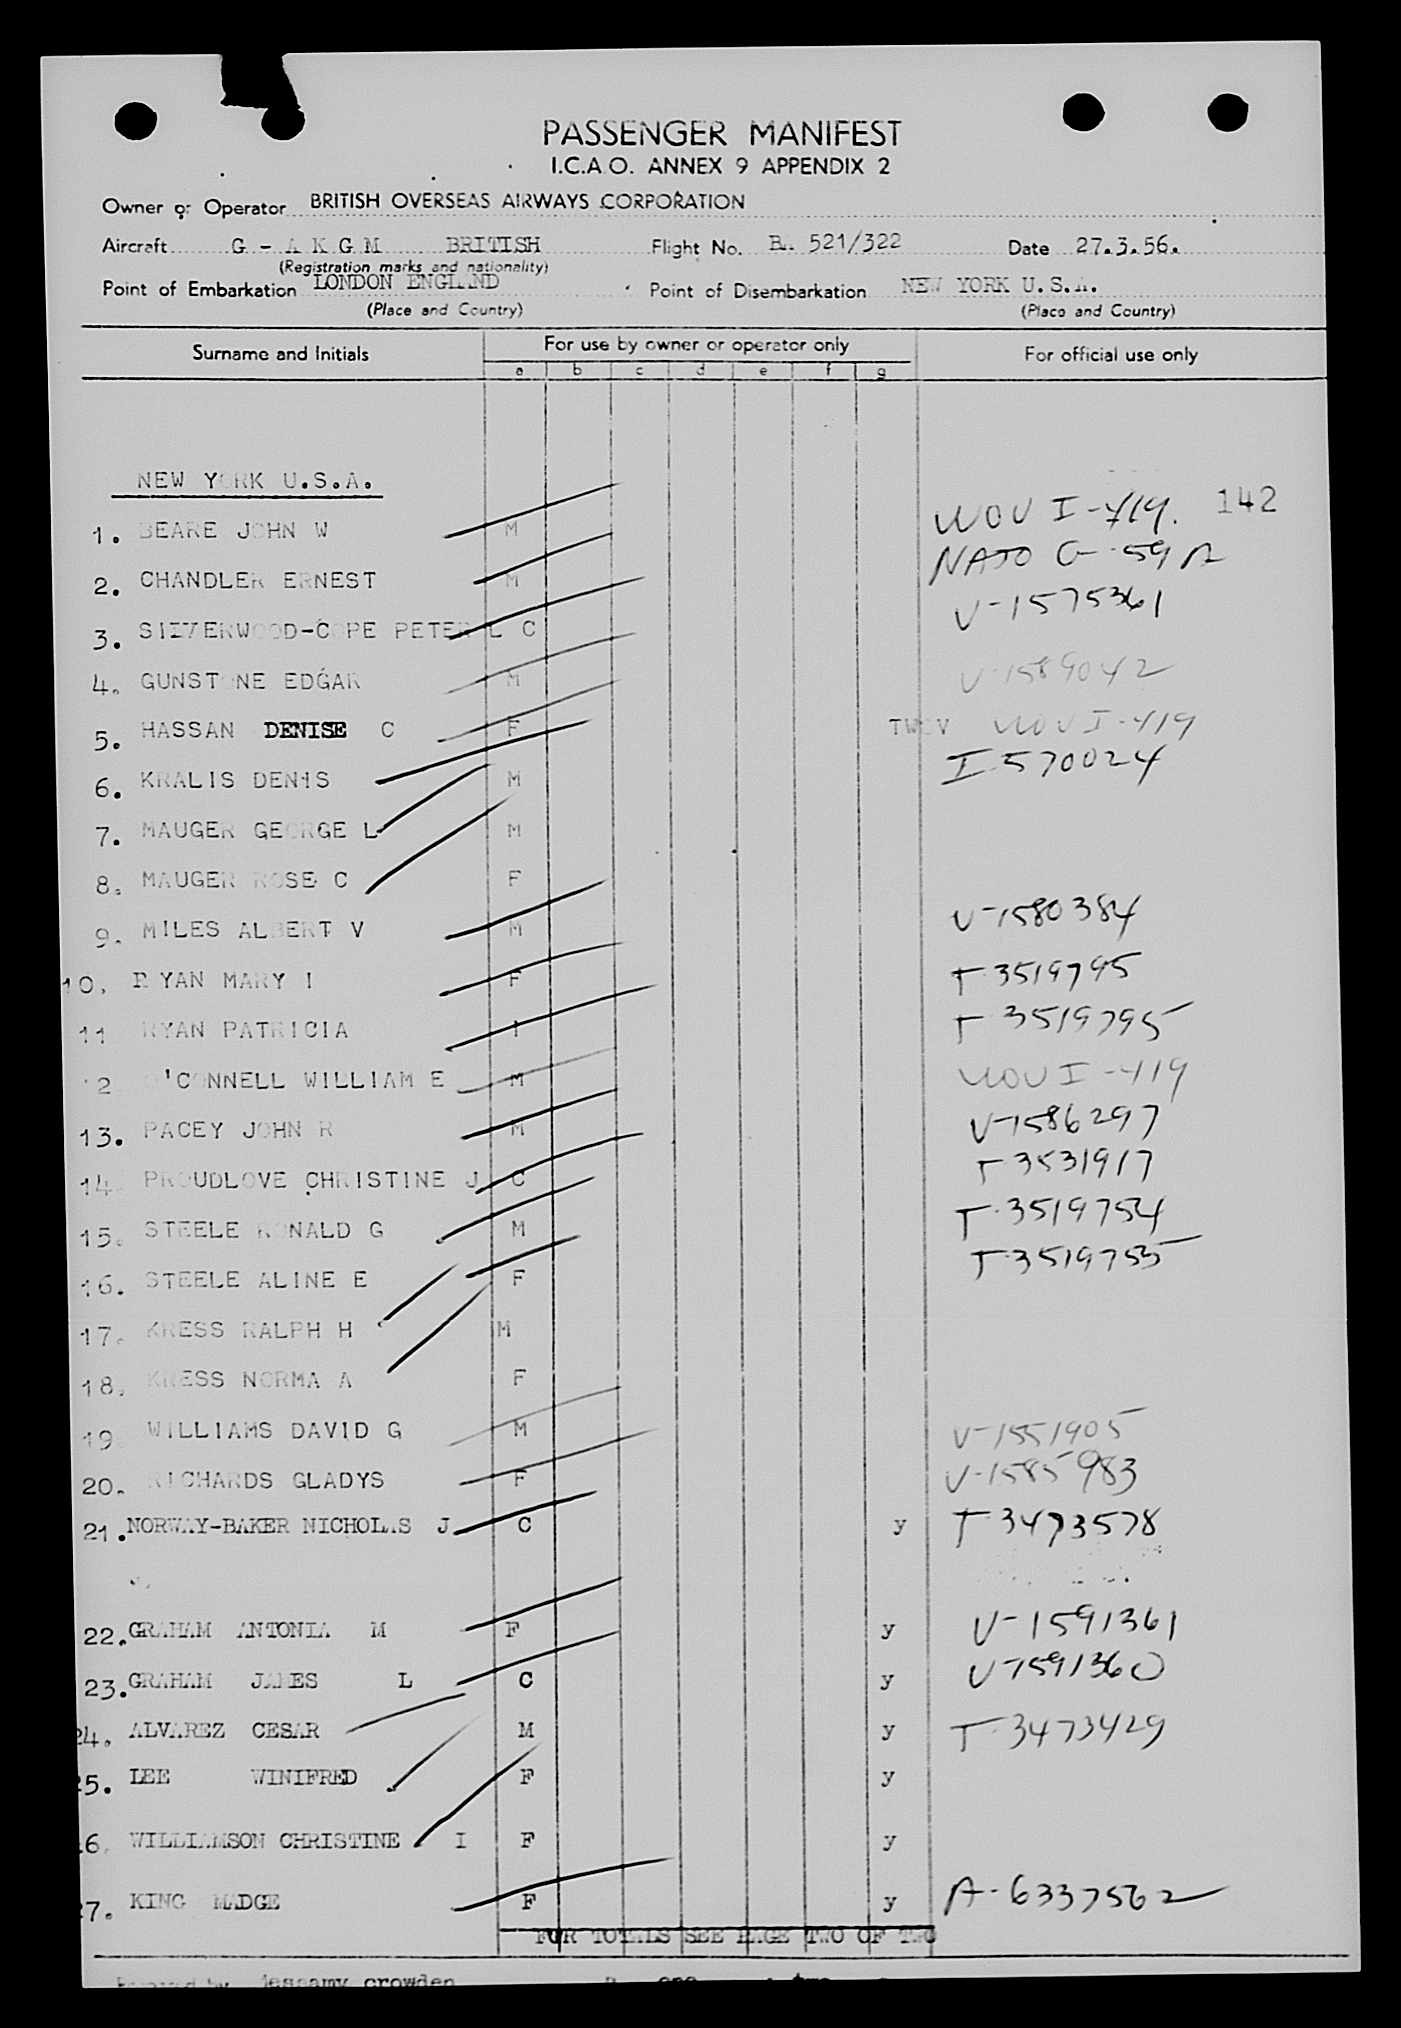 PASSENGER MANIFEST
I.C.A.O. ANNEX 9 APPENDIX 2
Owner or Operator BRITISH OVERSEAS AIRWAYS CORPORATION
Aircraft G - A K G M BRITISH Flight No. B. 521/322 Date 27.3.56.
(Registration marks and nationality)
Point of Embarkation LONDON ENGLAND Point of Disembarkation NEW YORK U.S.A.
(Place and Country) (Place and Country)
Surname and Initials For use by owner or operator only For official use only
a b c d e f g
NEW YORK U.S.A.
1. BEARE JOHN W M WOV I-419. 142
2. CHANDLER ERNEST M NATO O-59A
3. SILVERWOOD-COPE PETER L C V-1575361
4. GUNSTONE EDGAR M V-1589042
5. HASSAN DENISE C F TWOV WOV I-419
6. KRALIS DENIS M I-570024
7. MAUGER GEORGE L M
8. MAUGER ROSE C F
9. MILES ALBERT V M V-1580384
10. RYAN MARY I F T-3519795
11 RYAN PATRICIA I T-3519795
12 O'CONNELL WILLIAM E M WOV I-419
13. PACEY JOHN R M V-1586297
14. PROUDLOVE CHRISTINE J C T-3531917
15. STEELE RONALD G M T-3519754
16. STEELE ALINE E F T-3519755
17. KRESS RALPH H M
18. KRESS NORMA A F
19. WILLIAMS DAVID G M V-1551905
20. RICHARDS GLADYS F V-1585983
21. NORWAY-BAKER NICHOLAS J C y T-3473578
22. GRAHAM ANTONIA M F y V-1591361
23. GRAHAM JAMES L C y V-1591360
24. ALVAREZ CESAR M y T-3473429
25. LEE WINIFRED F y
26. WILLIAMSON CHRISTINE I F y
27. KING MADGE F y A-6337562
FOR TOTALS SEE PAGE TWO OF TWO
Prepared by Jessamy crowden